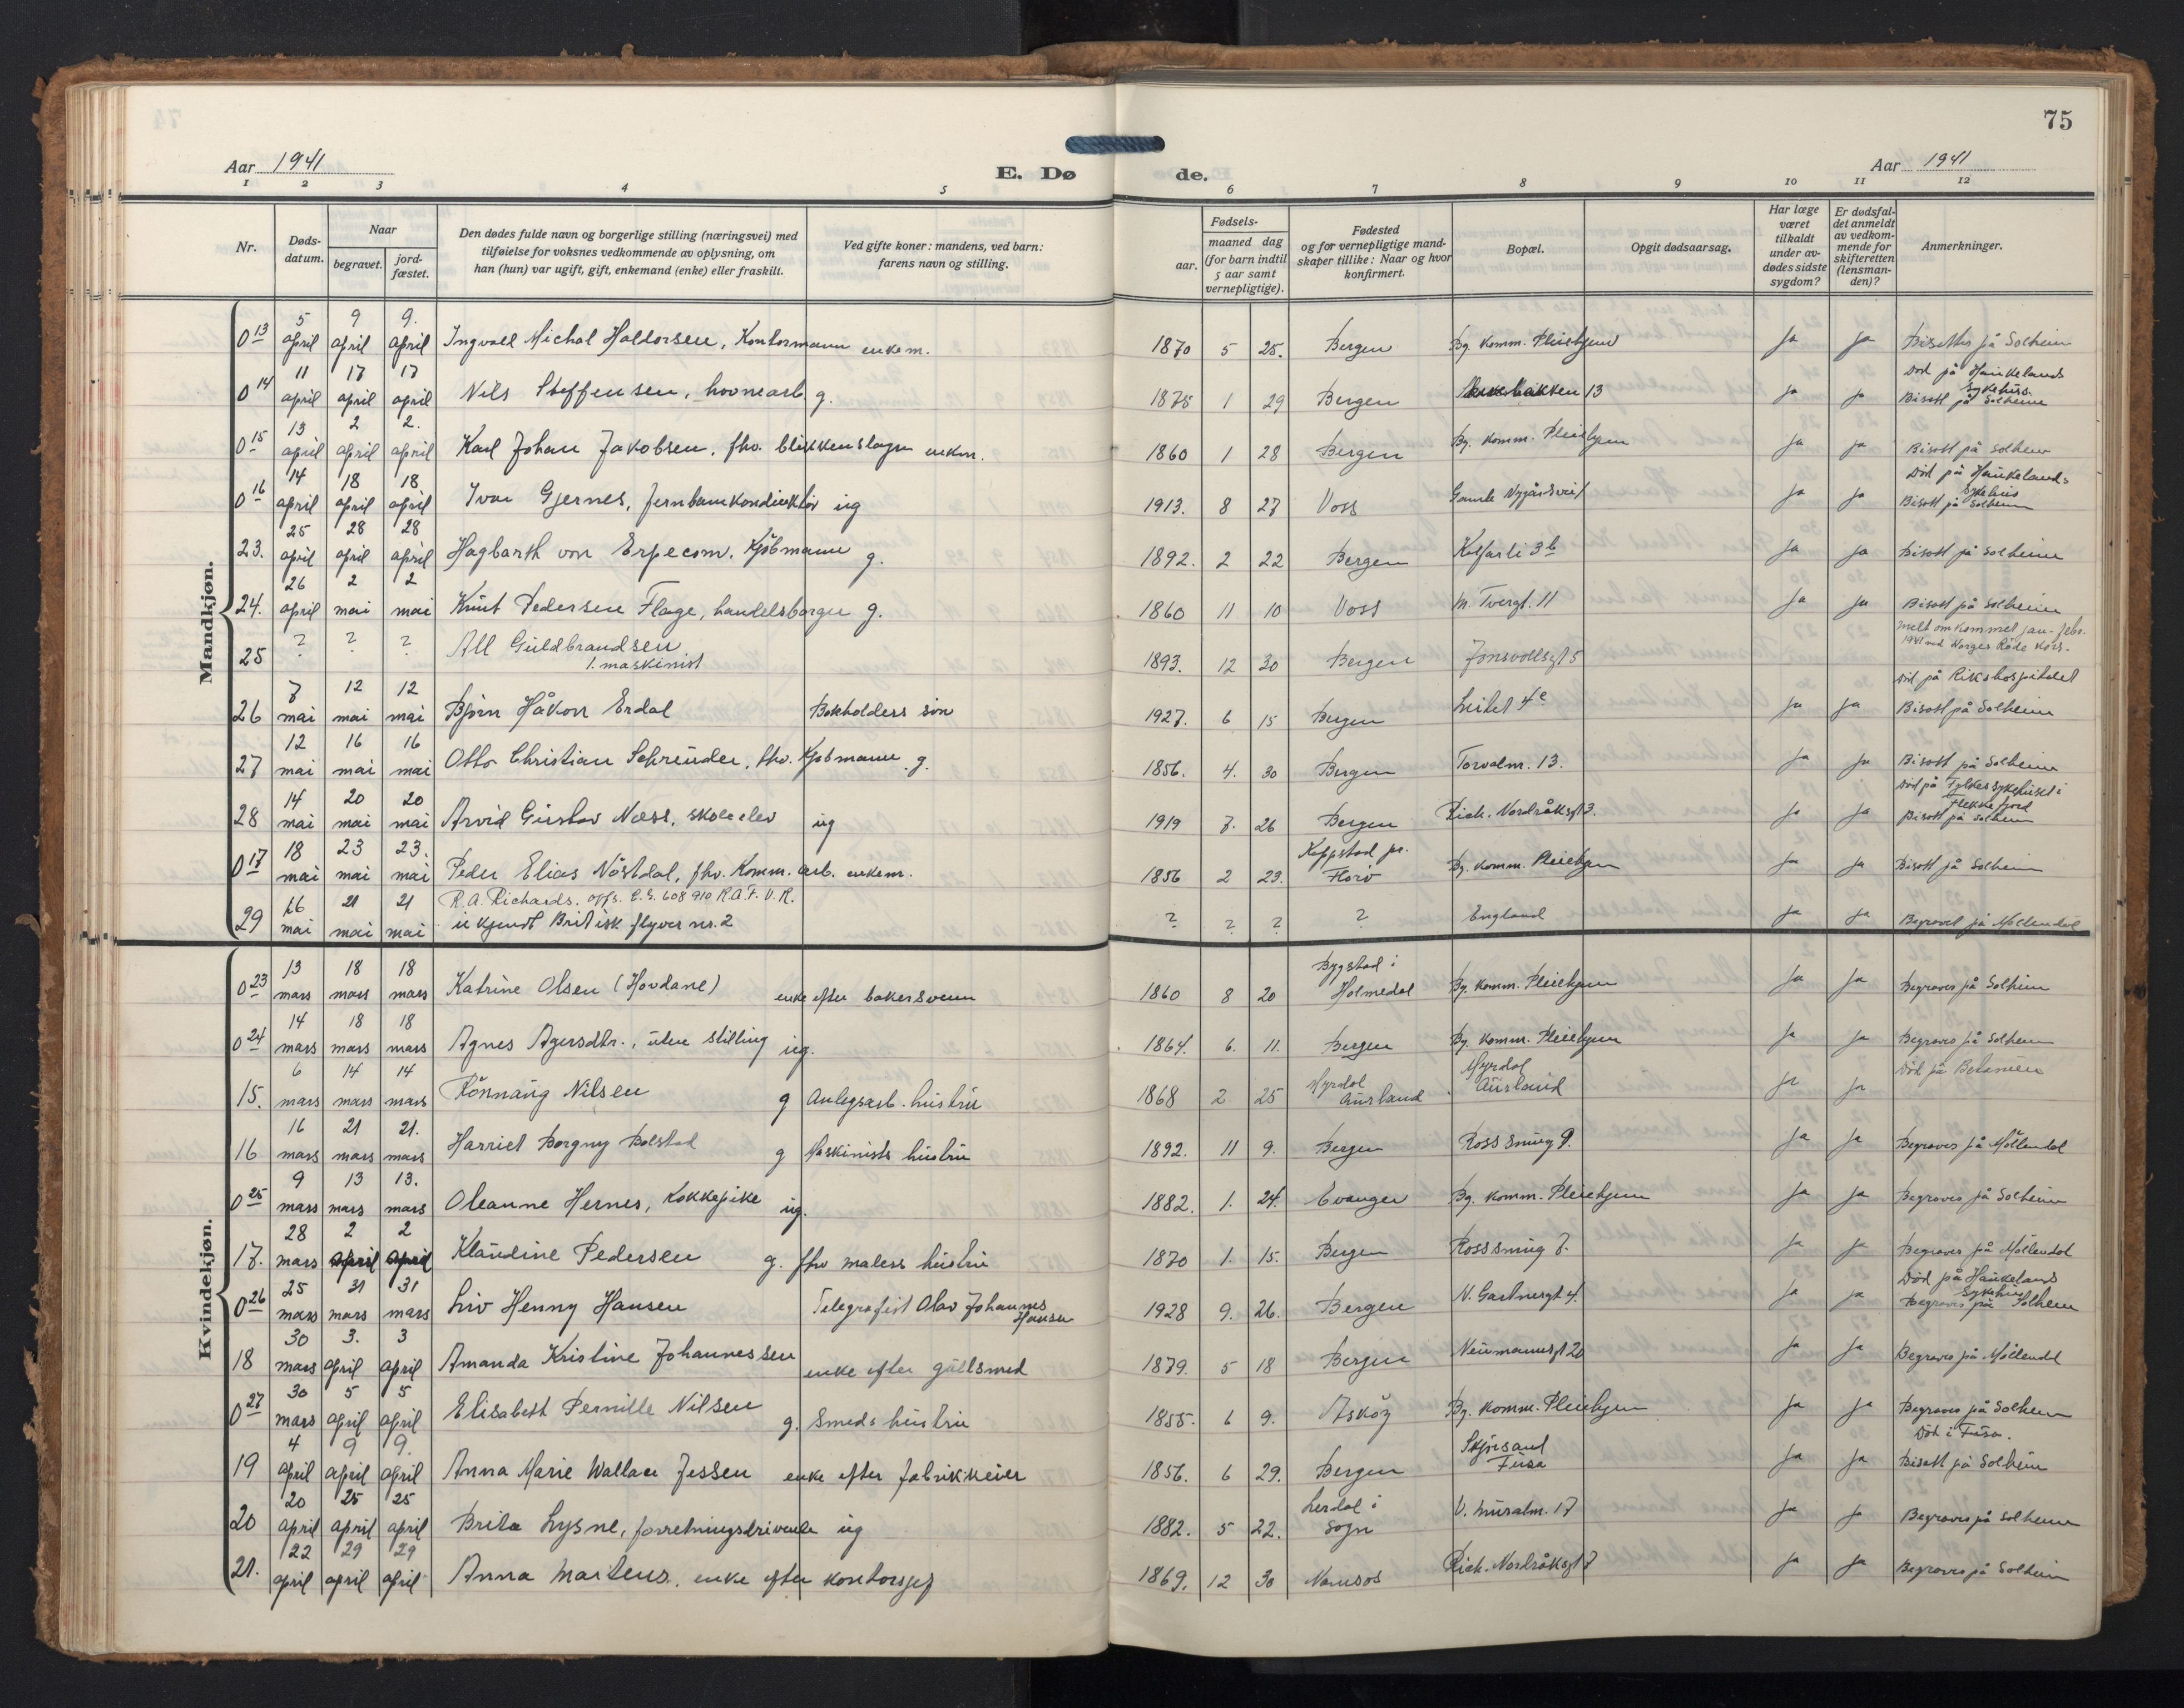 75
Aar 1941
E. Dø de.
Aar 1941
1 2 3 4 5 6 7 8 9 10 11 12
Nr.
Døds-datum.
Naar
begravet.
jord-fæstet.
Den dødes fulde navn og borgerlige stilling (næringsvei) med
tilføielse for voksnes vedkommende av oplysning, om
han (hun) var ugift, gift, enkemand (enke) eller fraskilt.
Ved gifte koner: mandens, ved barn:
farens navn og stilling.
Fødsels-
aar.
maaned dag
(for barn indtil
5 aar samt
vernepligtige).
Fødested
og for vernepligtige mand-
skaper tillike: Naar og hvor
konfirmert.
Bopæl.
Opgit dødsaarsag.
Har læge
været
tilkaldt
under av-
dødes sidste
sygdom?
Er dødsfal-
det anmeldt
av vedkom-
mende for
skifteretten
(lensman-
den)?
Anmerkninger.
Mandkjøn.
013 5 april 9 april 9. april Ingvald Michal Haldorsen, Kontormann enkem. 1870 5 25. Bergen Bg. komm. Pleiehjem Ja Ja Bisettes på Solheim
014 11 april 17 april 17 april Nils Steffensen, havnearb. g. 1875 1 29 Bergen 13 Ja Ja Död på Haukelands Sykehus. Bisatt på Solheim
015 13 april 2 april 2. april Karl Johan Jakobsen, fhv. blikkenslager enkm. 1860 1 28 Bergen Bg. komm. Pleiehjem Ja Ja Bisatt på Solheim
016 14 april 18 april 18 april Ivar Gjernes, Jernbanekonduktör ug 1913. 8 27 Voss Gamle Nygårdsvei Ja Ja Död på Haukelands Sykehus Bisatt på Solheim
23. 25 april 28 april 28 april Hagbarth von Erpecom, Kjöbmann g. 1892. 2 22 Bergen Kalfarli 3b Ja Ja Bisatt på Solheim
24. 26 april 2 mai 2 mai Knut Pedersen Flage, handelsborger g. 1860 11 10 Voss M. Tvergt. 11 Ja Ja Bisatt på Solheim
25 ? ? ? Alf Guldbrandsen 1. maskinist 1893. 12 30 Bergen Jonsvollsgt 5 Melt omkommet jan-febr. 1941 ved Norges Röde Kors.
26 7 mai 12 mai 12 mai Björn Håkon Erdal Bokholders sön 1927. 6 15 Bergen Leitet 4e Ja Ja Död på Rikshospitalet Bisatt på Solheim
27 12 mai 16 mai 16 mai Otto Christian Schreuder, fhv. Kjöbmann g. 1856. 4. 30 Bergen Torvalm. 13. Ja Ja Bisatt på Solheim
28 14 mai 20 mai 20 mai Arvid Gustav Næss, skoleelev ug 1919 7. 26 Bergen Rich. Nordråksgt 3. Ja Ja Död på Fylkessykehuset i Flekkefjord Bisatt på Solheim
017 18 mai 23 mai 23. mai Peder Elias Nöstdal, fhv. Komm. arb. enkem. 1856 2 23. pr. Florö Bg. komm. Pleiehjem Ja Ja Bisatt på Solheim
29 16 mai 21 mai 21 mai R. A. Richards. offs. 608 910 R.A.F. V.R.
ukjendt Britisk flyver nr. 2 ? ? ? ? England Ja Ja Begravet på Möllendal
Kvindekjøn.
023 13 mars 18 mars 18 mars Katrine Olsen (Hovdane) enke efter bakersvenn 1860 8 20 Bygstad i Holmedal Bg. komm. Pleiehjem Ja Ja Begraves på Solheim
024 14 mars 18 mars 18 mars Agnes Agersdtr., uten stilling ug. 1864. 6. 11. Bergen Bg. komm. Pleiehjem Ja Ja Begraves på Solheim
15. 6 mars 14 mars 14 mars Rönnaug Nilsen g Anlegsarb. hustru 1868 2 25 Myrdal Aurland Myrdal Aurland Ja Ja Död på Betanien
16 16 mars 21 mars 21. mars Harriet Borgny Bolstad g Maskinists hustru 1892. 11 9. Bergen Ross smug 9. Ja Ja Begraves på Möllendal
025 9 mars 13 mars 13. mars Oleanne Hernes, Kokkepike ug. 1882. 1. 24. Evanger Bg. komm. Pleiehjem Ja Ja Begraves på Solheim
17. 28 mars 2 april 2 april Klaudine Pedersen g. fhv malers hustru 1870 1. 15. Bergen Rosssmug 7. Ja Ja Begraves på Möllendal
026 25 mars 31 mars 31 mars Liv Henny Hansen Telegrafist Olav Johannes Hansen 1928 9. 26. Bergen N. Gartnergt 4. Ja Ja Död på Haukelands Sykehus Begraves på Solheim
18 30 mars 3. april 3 april Amanda Kristine Johannessen enke efter gullsmed 1879. 5 18 Bergen Neumannsgt 20 Ja Ja Begraves på Möllendal
027 30 mars 5 april 5 april Elisabeth Pernille Nilsen g. Smeds hustru 1855. 6 9. Asköy Bg. komm. Pleiehjem Ja Ja Begraves på Solheim
19 4 april 9 april 9. april Anna Marie Wallace Jessen enke efter fabrikkeier 1856. 6 29. Bergen Fusa Ja Ja Död i Fusa. Bisatt på Solheim
20 20 april 25 april 25 april Brita Lysne, forretningsdrivende ug 1882. 5 22. Lerdal i Sogn V. muralm. 17 Ja Ja Begraves på Solheim
21. 22 april 29 april 29 april Anna Martens, enke efter kontorsjef 1869. 12 30 Namsos Rich. Nordråksgt 7 Ja Ja Begraves på Solheim